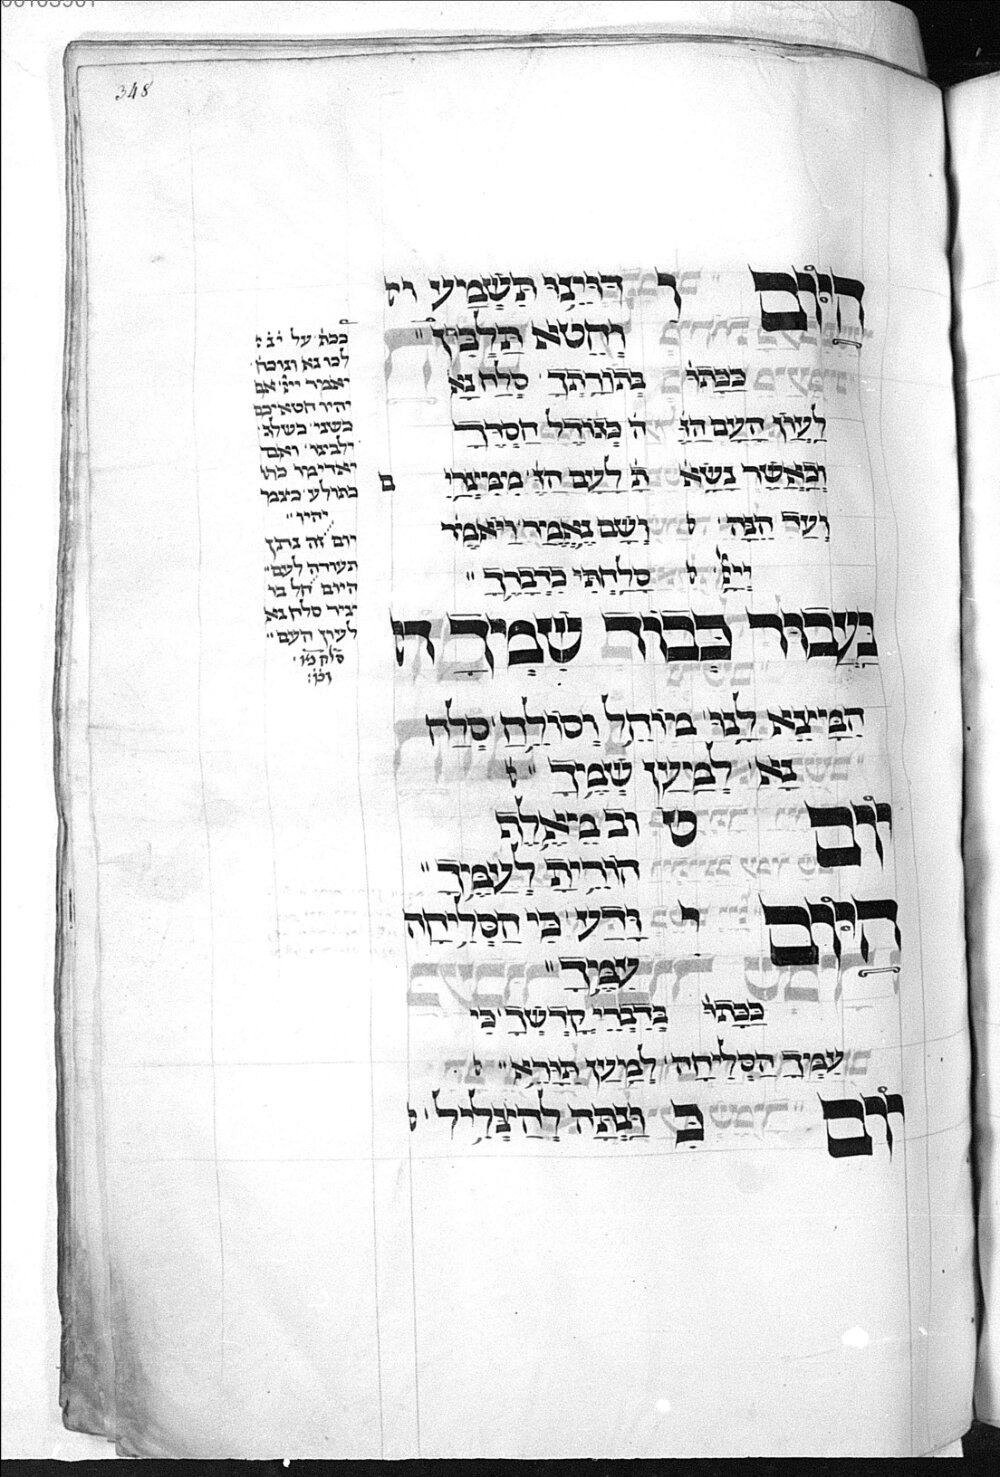 348
היום ך דויצו תשמיע וית
וחטא תלבין
ככתו בתורתך סלח נא
לעון העם הזה כגודל חסדך
וכאשר נשאת לעם הזה ממצרי ם
ועד הנה ושם נאמר ויאמר
ייי סלחתי כדברך
בעבור כבוד שמך ה
המצא לנו מוחל וסולח סלח
נא למען שמך
יום ט וב מאלף
הורית לעמך
היום י ודע כי הסליחה
עמך
ככתו בדברי קדשך כי
עמך הסליחה למען תורא
יום כ ונתה להצליל
ככת על
לכו נא ונוכח
יאמר ייי אם
יהיו חטאיכם
כשני כשלג
ילבינו ואם
יאדימו כתו
כתולע כצמר
יהיו
יום זה נותן
תעודה לעם
היום חל בו
ציר סלח נא
לעון העם